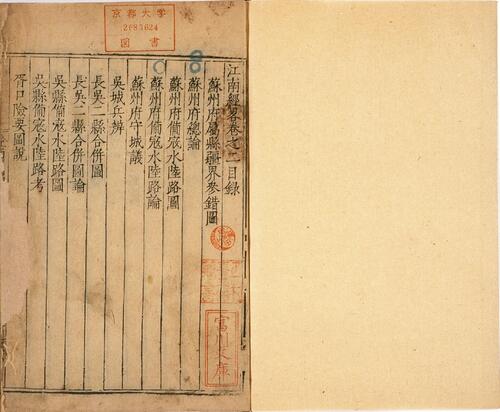 京都大学
2683624
図書
江南經畧卷之二目錄
蘇州府屬縣疆界參錯圖
蘇州府總論
蘇州府備寇水陸路圖
蘇州府備寇水陸路論
蘇州府守城議
吳城兵辨
長吳二縣合併圖
長吳二縣合併圖論
吳縣備寇水陸路圖
吳縣備寇水陸路考
胥口險要圖說
富川文庫